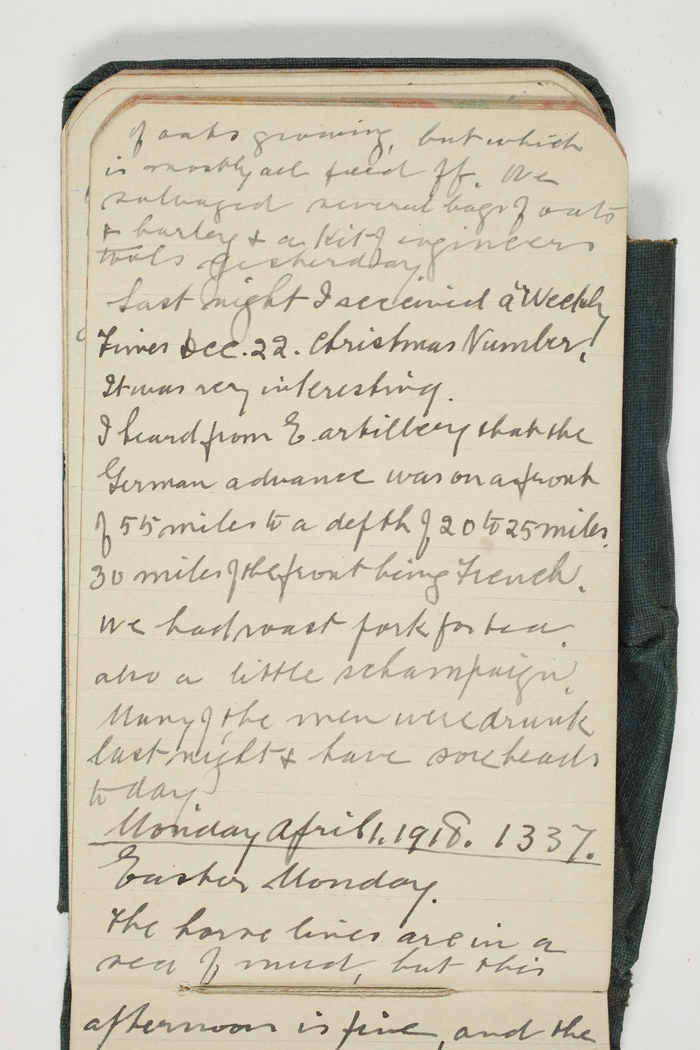 of oats growing, but which
is mostly all feed off. We
salvaged several bags of oats
& barley & a Kit of engineers
tools yesterday.
Last night I received a "Weekly
Times Dec. 22. Christmas Number.
It was very interesting.
I heard from E. artillery that the
German advance was on a front
of 55 miles to a depth of 20 to 25 miles.
30 miles of the front being French.
We had roast pork for tea.
also a little schampaign.
Many of the men were drunk
last night & have sore heads
to day.
Monday April 1. 1918. 1337.
Easter Monday.
The horse lines are in a
sea of mud, but this
afternoon is fine, and the